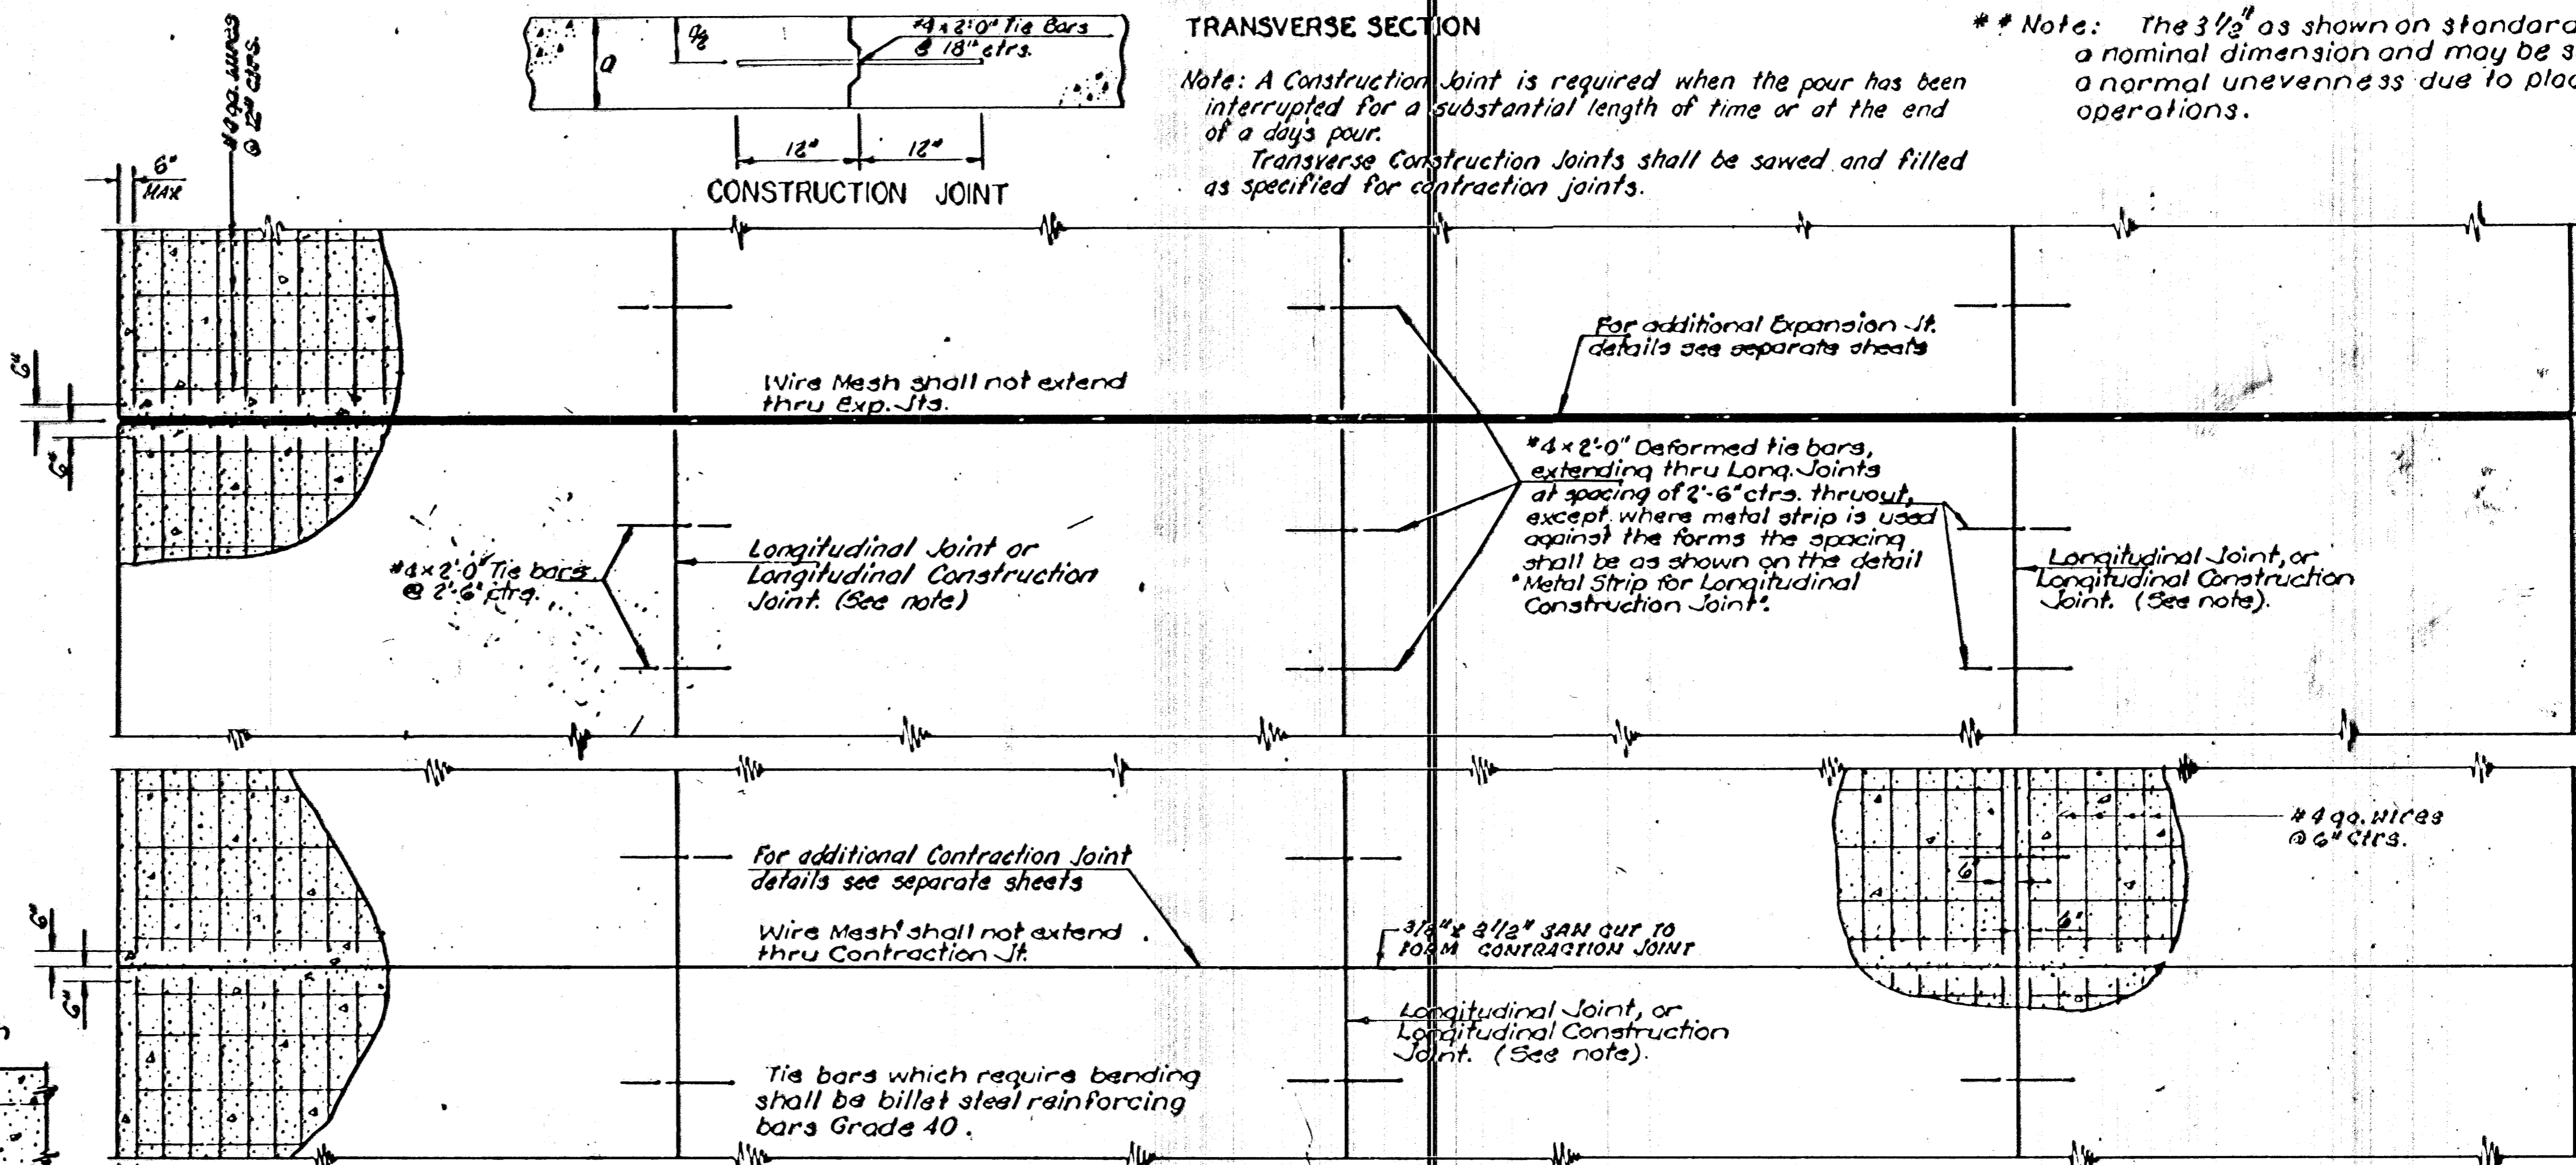 #4 x 2'-0" Tie Bars
@ 18" ctrs.
a
12" 12"
CONSTRUCTION JOINT
TRANSVERSE SECTION
Note: A Construction Joint is required when the pour has been
interrupted for a substantial length of time or at the end
of a day's pour.
Transverse Construction Joints shall be sawed and filled
as specified for contraction joints.
** Note: The 3 1/2" as shown on standard
a nominal dimension and may be s
a normal unevenness due to plac
operations.
#4 ga. WIRES
@ 12" CTRS.
6"
MAX
6"
6"
Wire Mesh shall not extend
thru Exp. Jts.
For additional Expansion Jt.
details see separate sheets
#4 x 2'-0" Tie bars
@ 2'-6" ctrs.
Longitudinal Joint or
Longitudinal Construction
Joint. (See note)
#4 x 2'-0" Deformed tie bars,
extending thru Long. Joints
at spacing of 2'-6" ctrs. thruout,
except where metal strip is used
against the forms the spacing
shall be as shown on the detail
"Metal Strip for Longitudinal
Construction Joint".
Longitudinal Joint, or
Longitudinal Construction
Joint. (See note).
For additional Contraction Joint
details see separate sheets
Wire Mesh shall not extend
thru Contraction Jt.
SAW CUT TO
FORM CONTRACTION JOINT
#4 ga. WIRES
@ 6" CTRS.
6"
6"
6"
6"
Longitudinal Joint, or
Longitudinal Construction
Joint. (See note).
Tie bars which require bending
shall be billet steel reinforcing
bars Grade 40.